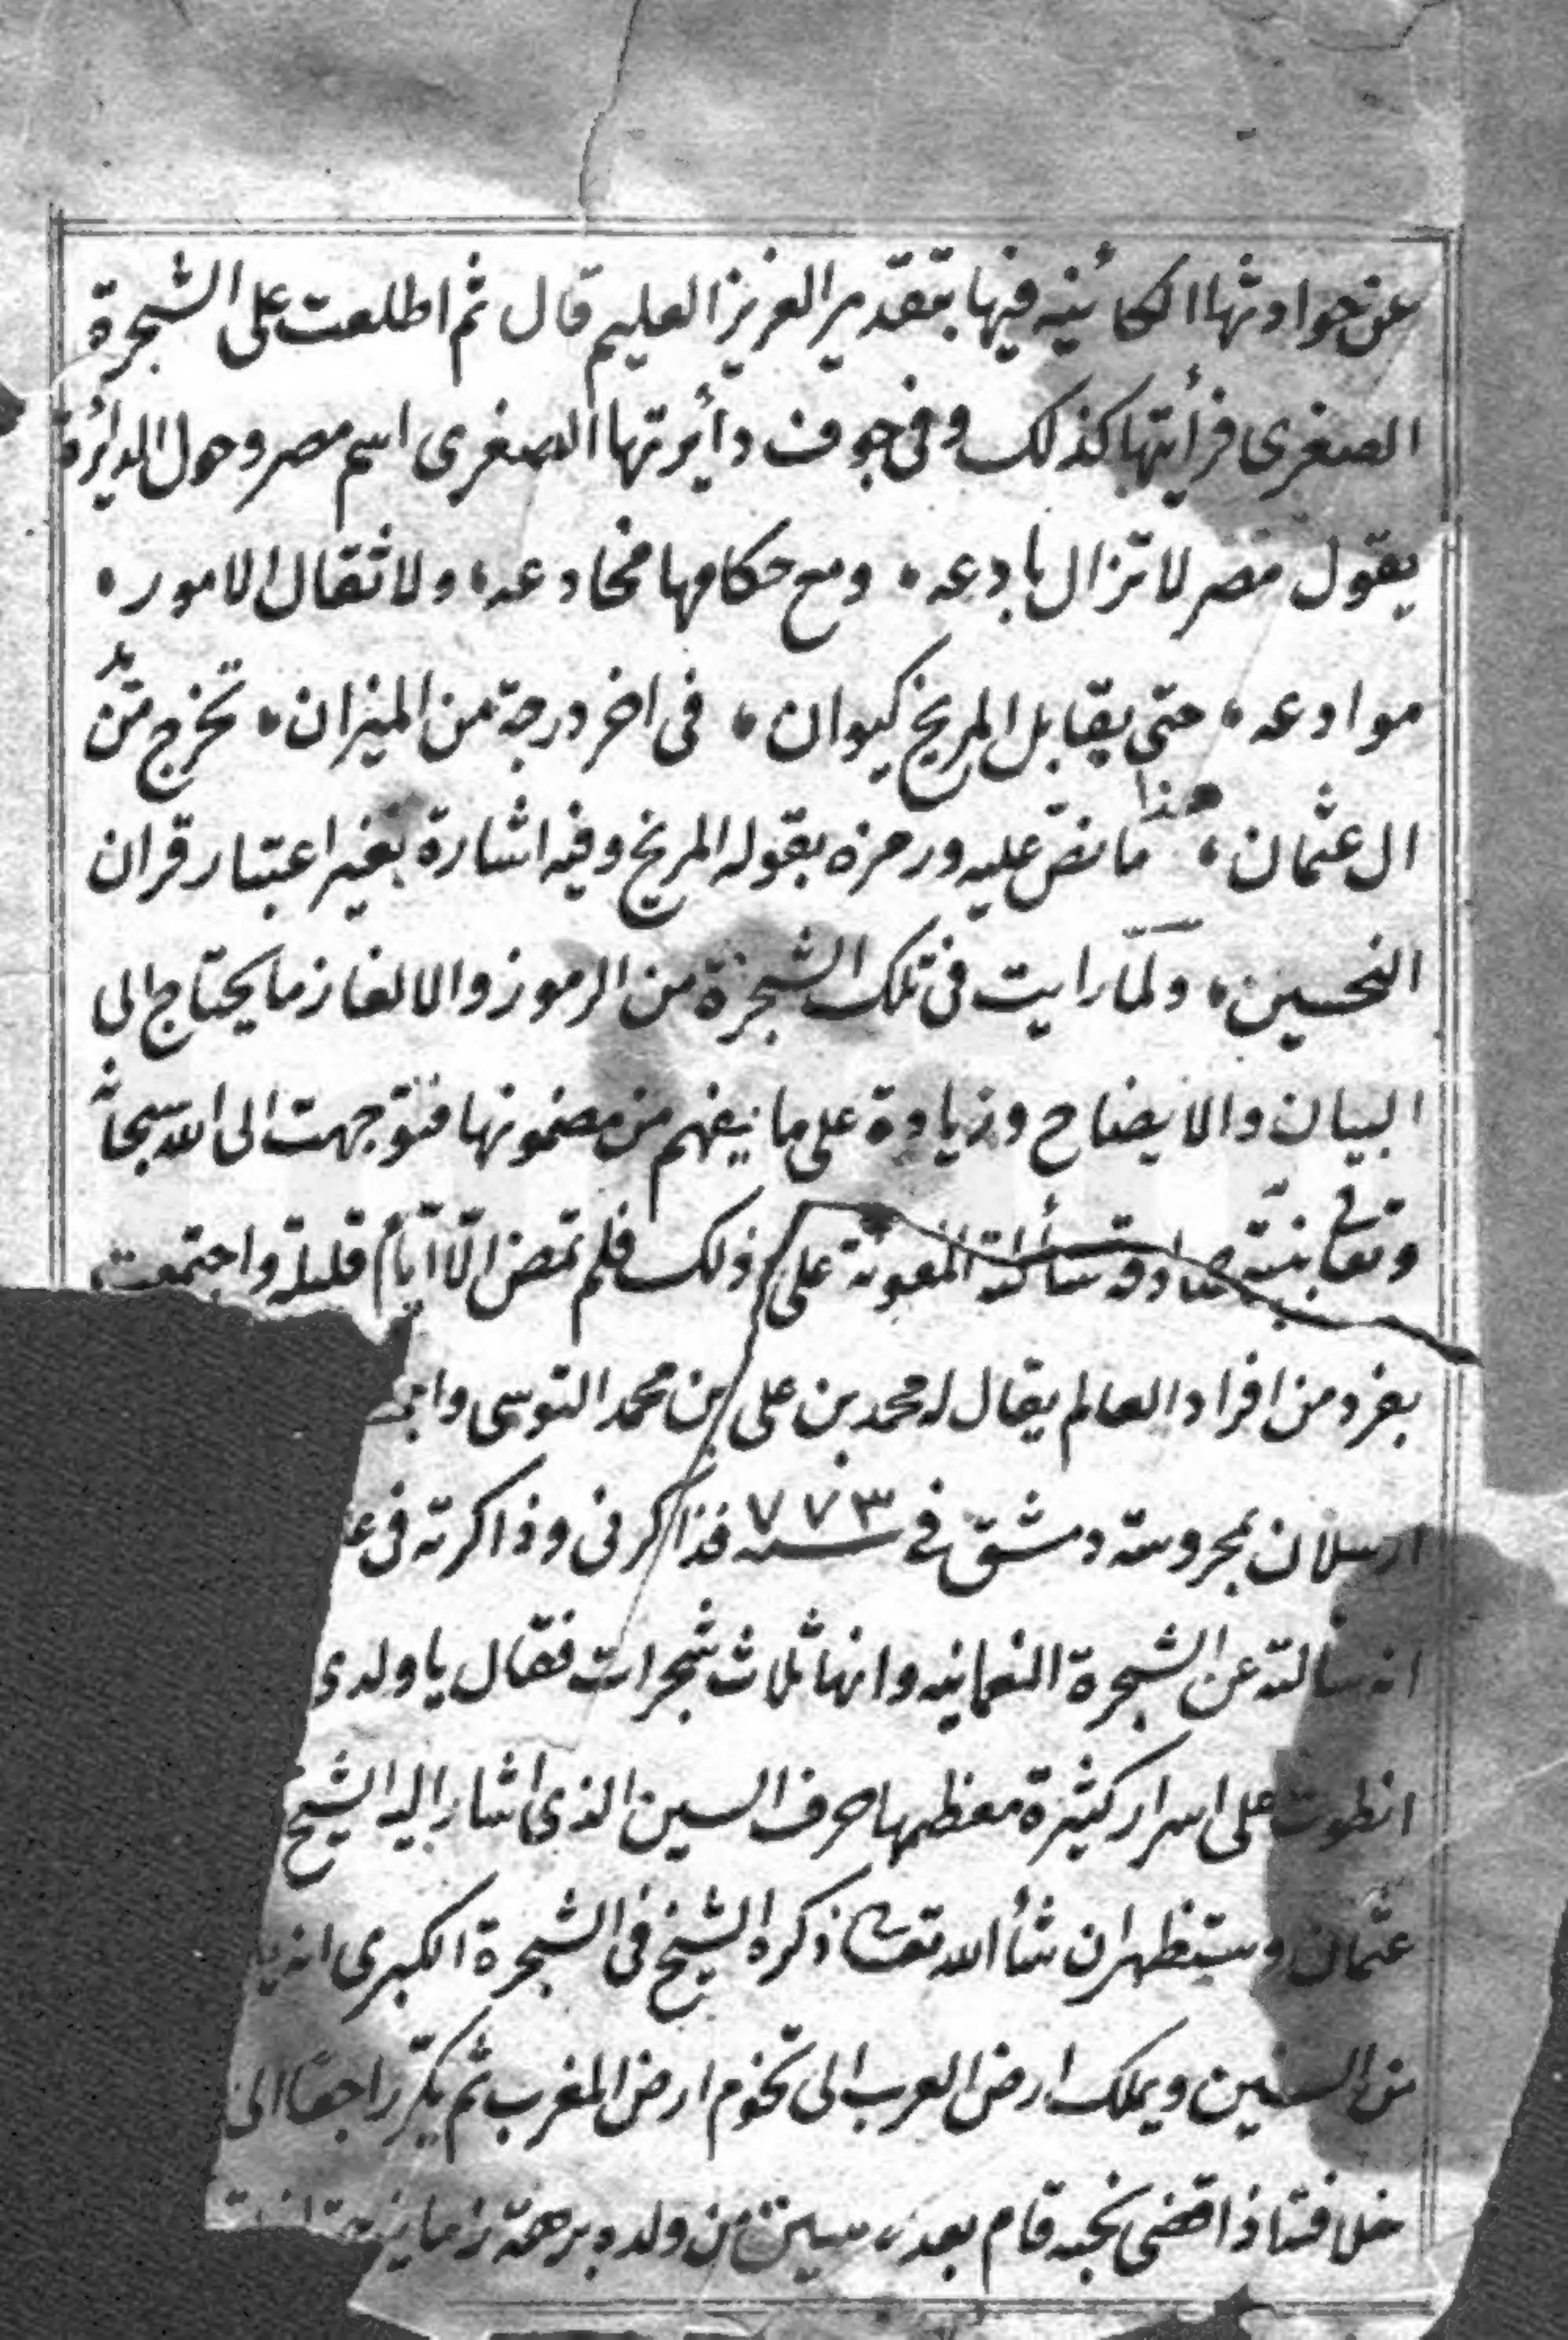 عن حوادثها الكائنه فيها بتقدير العزيز العليم قال ثم اطلعت على الشجرة
الصغرى فرأيتها كذلك وفى جوف دأيرتها الصغرى اسم مصر وحول الدايرة
يقول مصر لا تزال بادعه، ومع حكامها مخادعه، ولا ثقال الامور،
موادعه، حتى يقابل المريخ كيوان، فى اخر درجة من الميزان، تخرج من يد
ال عثمان، هذا ما نص عليه ورمزه بقوله المريخ وفيه اشارة بغير اعتبار قران
النحسين، ولمّا رايت فى تلك الشجرة من الرموز والالغاز ما يحتاج الى
البيان والايضاح وزيادة على ما يفهم من مضمونها فتوجهت الى الله سبحانه
وتعالى بنيّة صادقة سألته المعونة على ذلك فلم تمض الّا ايّام قليلة واجتمعت
بفرد من افراد العالم يقال له محمد بن على بن محمد التوسى
ارسلان بمحروسة دمشق فى سنه ٧٧٣ فذاكرنى وذاكرته فى
انه سالته عن الشجرة النعمانيه وانها ثلاث شجرات فقال يا ولدى
انطوت على اسرار كثيرة معظمها حرف السين الذى اشار اليه الشيخ
عثمان وستظهر ان شأ الله تعالى ذكره الشيخ فى الشجرة الكبرى انه
من السنين ويملك ارض العرب الى تخوم ارض المغرب ثم يكرّ راجعا الى
خلافته اذا قضى نحبه قام بعده سين من ولده برهة زمانيه